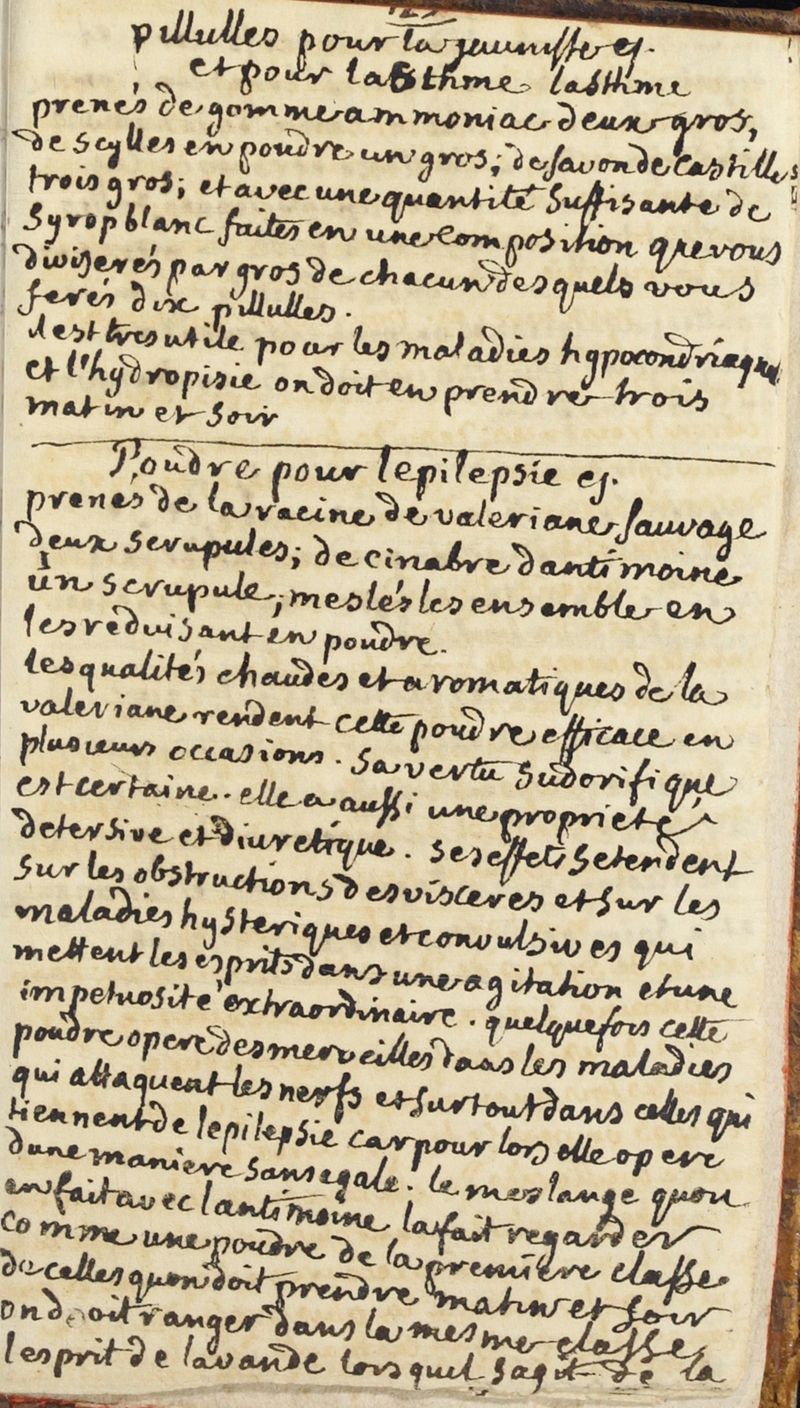 pillulles pour la jaunisse ej.
et pour lasthme lasthme
prenés de gomme ammoniac deux gros,
de scylles en poudre un gros; de savon de Castille
trois gros; et avec une quantité suffisante de
syrop blanc faites en une composition que vous
diviserés par gros de chacun desquels vous
ferés dix pillulles.
il est tres utile pour les maladies hypocondriaques
et l'hydropisie on doit en prendre trois
matin et soir
Poudre pour lepilepsie ej.
prenés de la racine de valeriane sauvage
deux scrupules; de cinabre dantimoine
un scrupule; meslés les ensemble en
les reduisant en poudre.
les qualités chaudes et aromatiques de la
valeriane rendent cette poudre efficace en
plusieurs occasions. sa vertu sudorifique
est certaine. elle a aussi une propriété
detersive et diuretique. ses effets setendent
sur les obstructions des visceres et sur les
maladies hysteriques et convulsives qui
mettent les esprits dans une agitation et une
impetuosité extraordinaire. quelquefois cette
poudre opere des merveilles dans les maladies
qui attaquent les nerfs et surtout dans celles qui
tiennent de lepilepsie car pour lors elle opere
dune maniere sans egale. le meslange quon
en fait avec lantimoine la fait regarder
comme une poudre de la premiere classe
de celles quon doit prendre matin et soir
on doit ranger dans la mesme classe
lesprit de lavande lors quil sagit de la